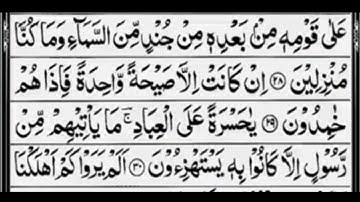 عَلٰى قَوْمِهٖ مِنْۢ بَعْدِهٖ مِنْ جُنْدٍ مِّنَ السَّمَآءِ وَمَا كُنَّا
مُنْزِلِيْنَ ﴿۲۸﴾ اِنْ كَانَتْ اِلَّا صَيْحَةً وَّاحِدَةً فَاِذَا هُمْ
خٰمِدُوْنَ ﴿۲۹﴾ يٰحَسْرَةً عَلَى الْعِبَادِ ۚ مَا يَاْتِيْهِمْ مِّنْ
رَّسُوْلٍ اِلَّا كَانُوْا بِهٖ يَسْتَهْزِءُوْنَ ﴿۳۰﴾ اَلَمْ يَرَوْا كَمْ اَهْلَكْنَا